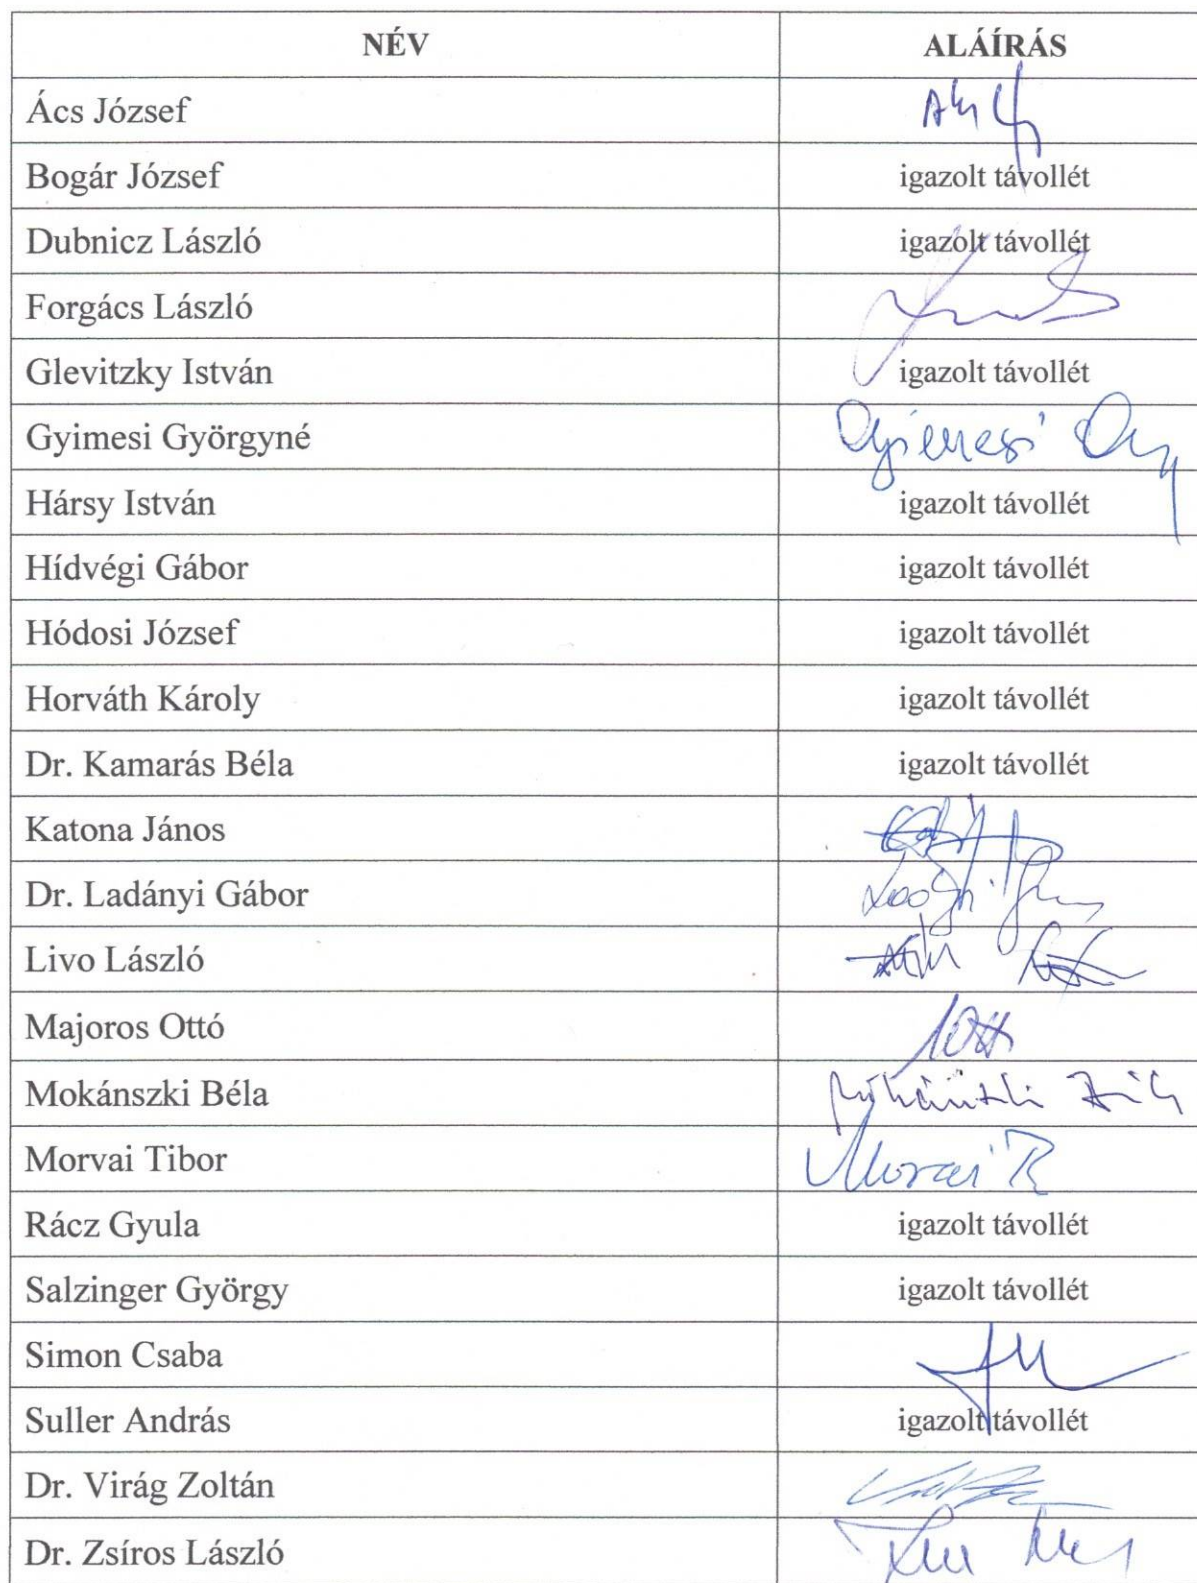 NÉV ALÁÍRÁS
Ács József
Bogár József igazolt távollét
Dubnicz László igazolt távollét
Forgács László
Glevitzky István igazolt távollét
Gyimesi Györgyné Gyimesi Gy
Hársy István igazolt távollét
Hídvégi Gábor igazolt távollét
Hódosi József igazolt távollét
Horváth Károly igazolt távollét
Dr. Kamarás Béla igazolt távollét
Katona János
Dr. Ladányi Gábor
Livo László
Majoros Ottó
Mokánszki Béla
Morvai Tibor Morvai T
Rácz Gyula igazolt távollét
Salzinger György igazolt távollét
Simon Csaba
Suller András igazolt távollét
Dr. Virág Zoltán
Dr. Zsíros László